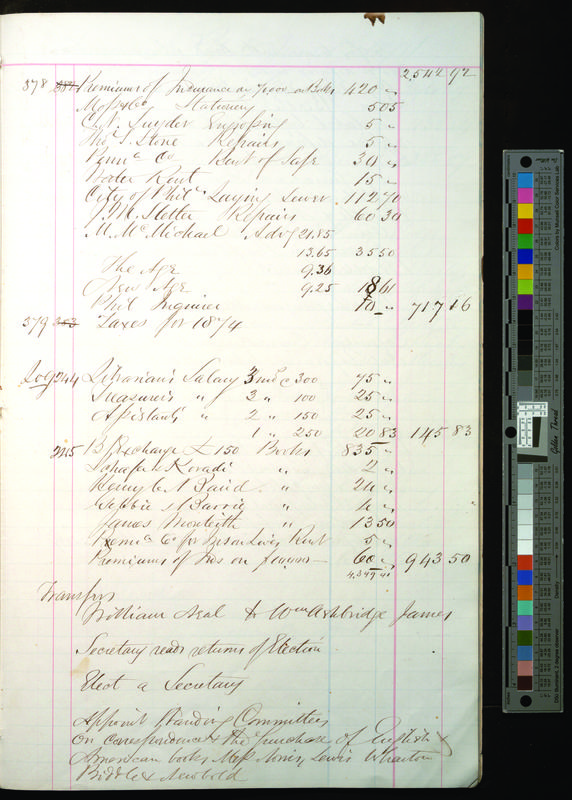 2542 92
378 381 Premiums of Insurance on 7000 on Books 420 "
Moss & Co Stationery 5 05
C. N. Snyder Engrossing 5 "
Tho. S. Stone Repairs 5 "
Penna Co Rent of Safe 30 "
Water Rent 15 "
City of Phila Laying Sewer 112 70
J. M. Slatter Repairs 60 30
M. McMichael Advg 21.85
13.65 35 50
The Age 9.36
New Age 9.25 18 61
Phil Inquirer 10 " 717 16
379 383 Taxes for 1874
Log 244 Librarian's Salary 3 mos @ 300 75 "
Treasurer's " 3 " 100 25 "
Assistants " 2 " 150 25 "
1 " 250 20 83 145 83
245 B/ Exchange £150 Books 835 "
Schafer & Koradi " 2 "
Henry C Baird " 24 "
Gebbie & Barrie " 4 "
James Monteith " 13 50
Penna Co for Ins on Lives Rent 5 "
Premiums of Ins on 60 " 943 50
4,349 41
Transfers
William Seal to Wm Ashbridge James
Secretary reads returns of Election
Elect a Secretary
Appoint Standing Committees
On correspondence & the purchase of English &
American books Mess Norris, Lewis Wharton
Biddle & Newbold